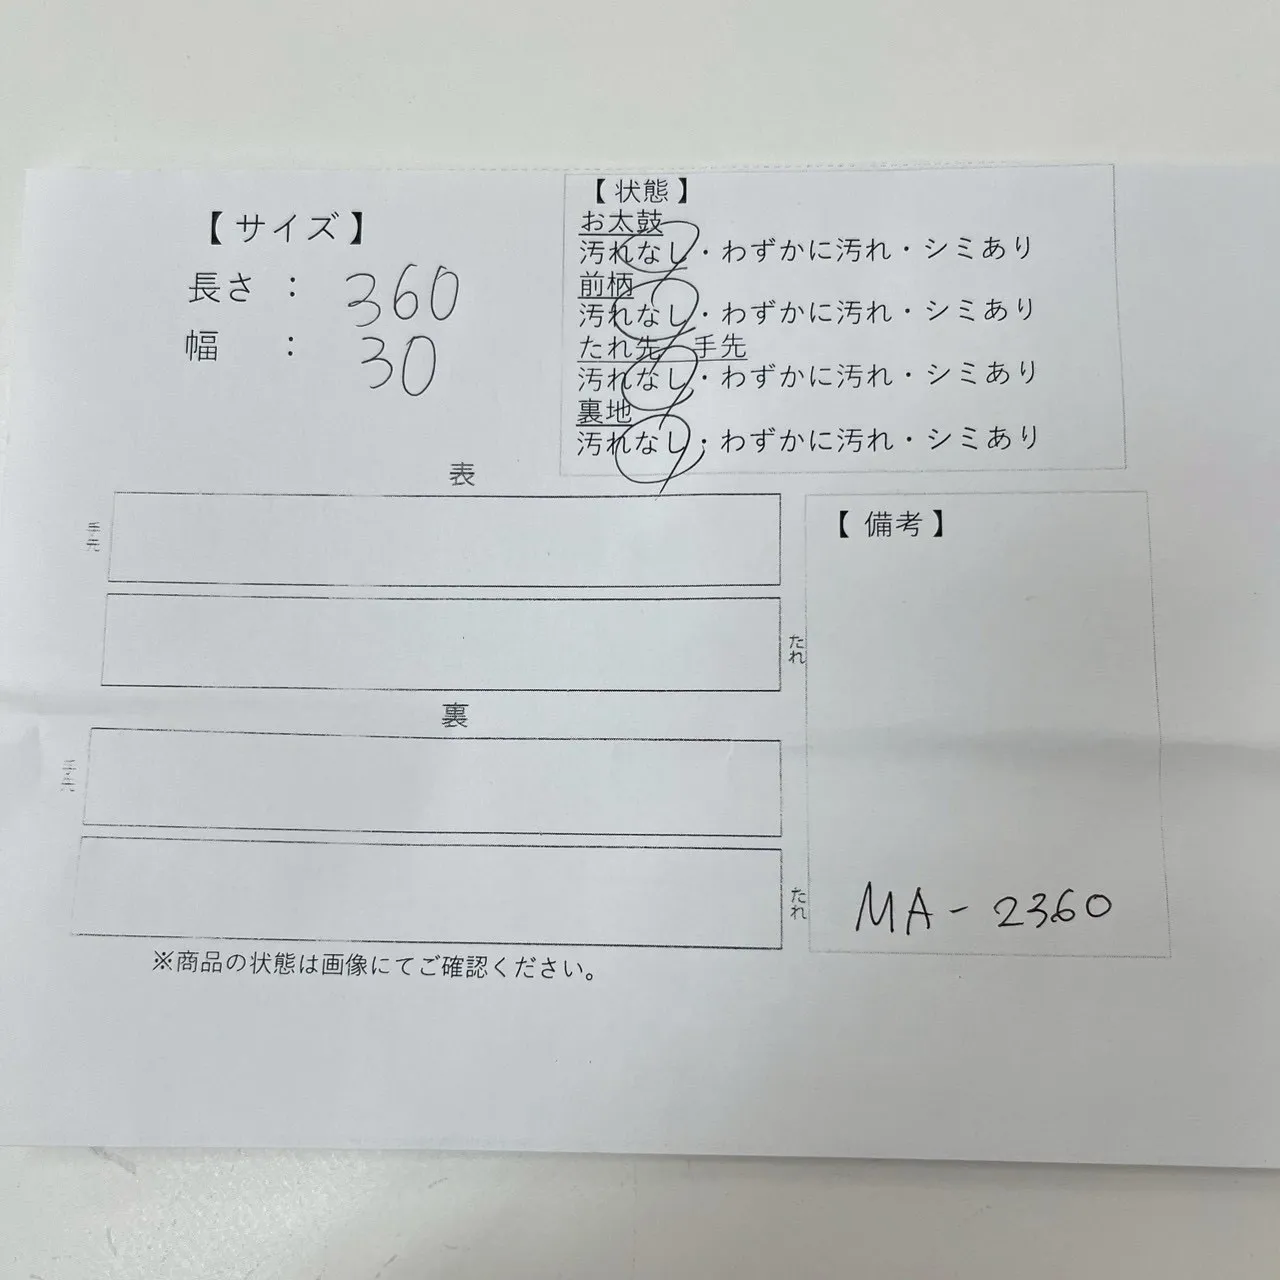 【サイズ】
長さ : 360
幅 : 30
【状態】
お太鼓
汚れなし・わずかに汚れ・シミあり
前柄
汚れなし・わずかに汚れ・シミあり
たれ先 手先
汚れなし・わずかに汚れ・シミあり
裏地
汚れなし・わずかに汚れ・シミあり
表
手先
たれ
裏
手先
たれ
【備考】
MA-2360
※商品の状態は画像にてご確認ください。